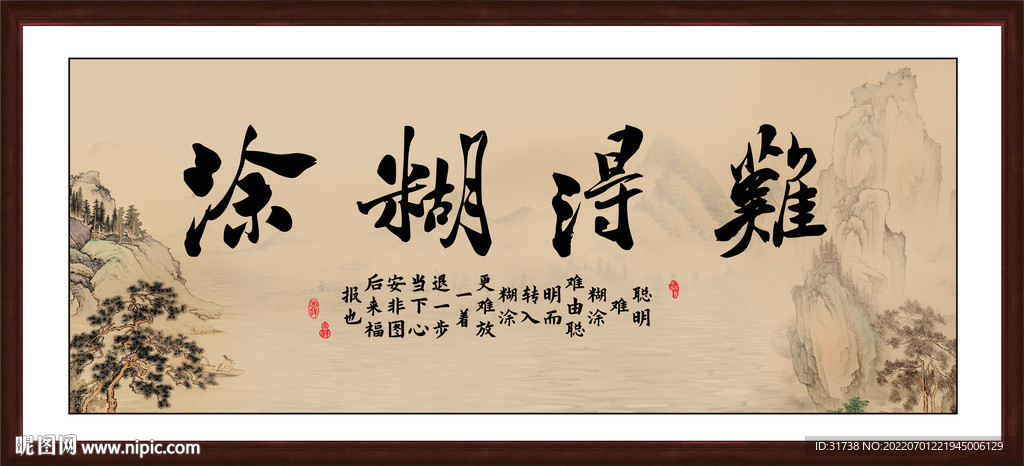 難得糊涂
聪明
难
糊涂
难由聪
明而
转入
糊涂
更难放
一着
退一步
当下心
安非图
后来福
报也
昵图网 www.nipic.com
ID:31738 NO:20220701221945006129